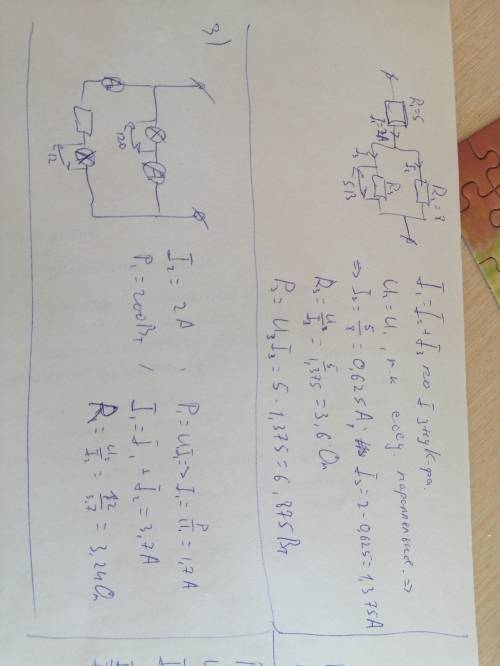 R₁=6
I₁=2A
R₂=8
I₂
I₃
R₃
5В
I₁=I₂+I₃ по I з-ну К-ра.
U₂=U₃, т.к. соед. параллельное =>
=> I₂ = 5/8 = 0,625A; I₃=2-0,625=1,375A
R₃ = U₃/I₃ = 5/1,375 = 3,6 Ом
P₃ = U₃I₃ = 5·1,375 = 6,875 Вт
3)
A
120
12
I₂ = 2A
P₁ = 200Вт
P₁=UI => I₁ = P₁/U₁ = 1,7A
I₁=I₁+I₂=3,7A
R = U₂/I₂ = 12/3,7 = 3,24Ом